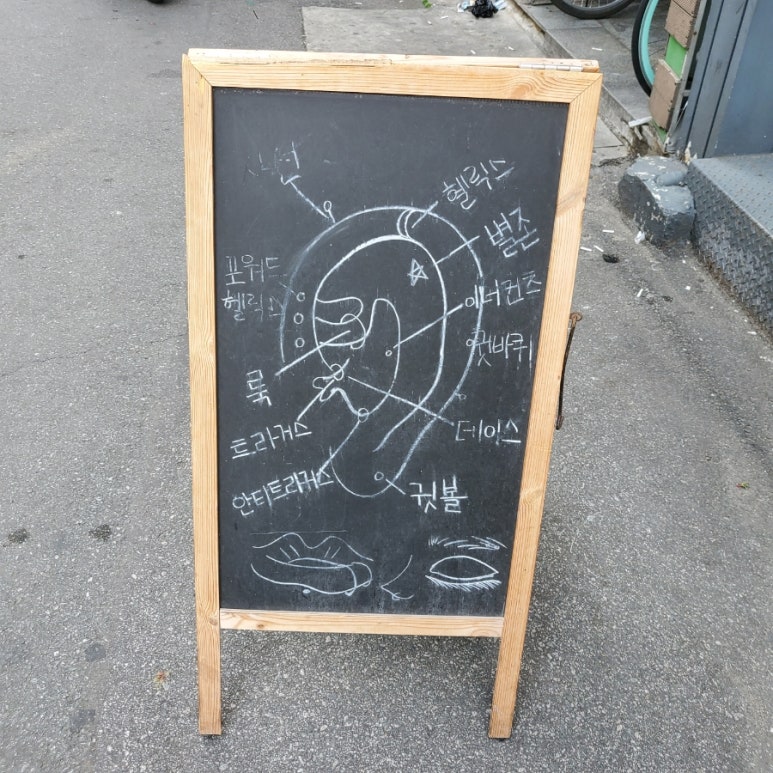 헬릭스
별존
포워드
헬릭스
이너컨츠
귓바퀴
룩
트라거스
데이스
안티트라거스
귓볼